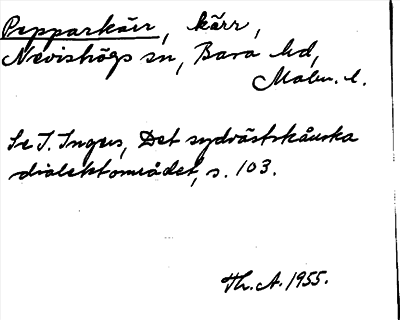 Pepparkärr, kärr,
Nevishögs sn, Bara hd,
Malm. l.
Se I. Ingers, Det sydvästskånska
dialektområdet, s. 103.
Th. A. 1955.